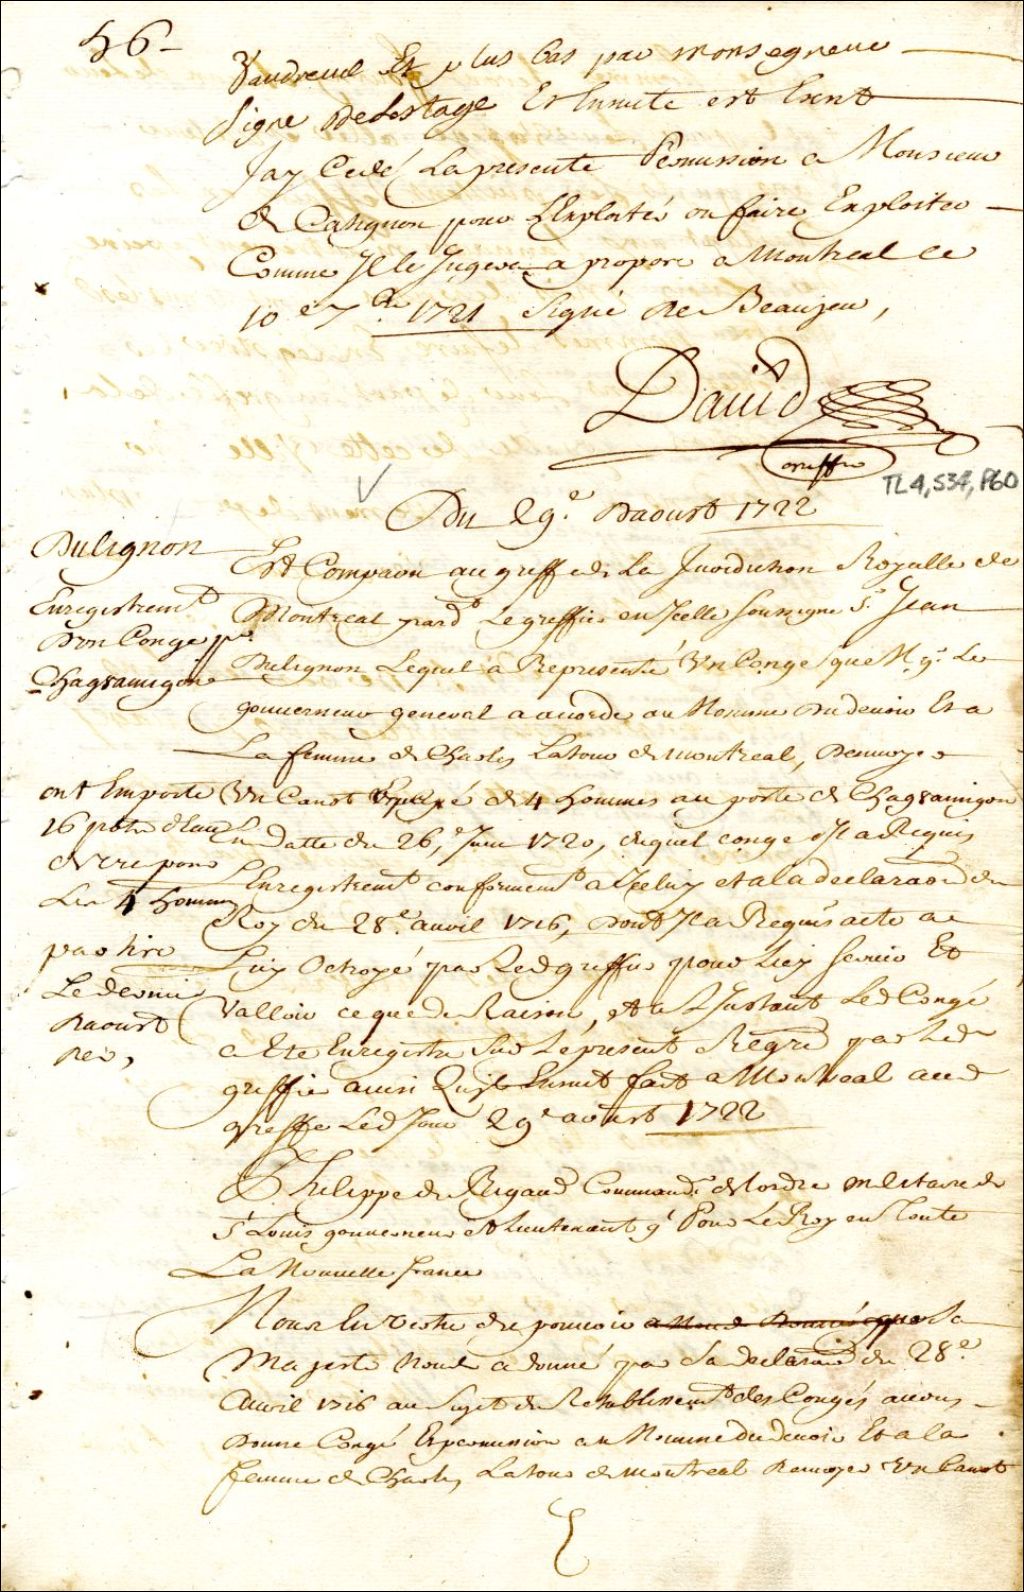 56-
Vaudreuil Et plus bas par monsegneur
Signe DeLestage Et Ensuite est Ecrit
Jay Cedé La presente Permission a Monsieur
de Catignon pour L'Exploiter ou faire Exploiter
Comme Il le Jugera a propore a Montreal ce
10e 7bre 1721 Signé De Beaujeu,
David
greffier
TL4,S34,P60
Du 29e Daoust 1722
Dulignon
Enregistremt
Dun Conge pr
Chagsamigon
Est Comparu au greffe de La Jurisdiction Royalle de
Montreal pard Le greffier en Icelle soussigne Sr Jean
Dulignon Lequel a Representé Un Conge que M. gr Le
gouverneur general a acordé au Nomme Dudevoir Et a
La femme de Charles Latour de montreal, Denvoyer
Un Canot Equipé de 4 hommes au poste de Chagsamigon
En datte du 26e Juin 1720, duquel conge Il a Requis
L'Enregistremt conformemt a Iceluy et a la declaraon du
Roy du 28e avril 1716, Dont Il a Requis acte a
Luy Octroyé par Led greffier pour Luy servir Et
Valloir ce que de Raison, Et a L'Instant Led Congé
a Ete Enregistre Sur Le present Regre par Led
greffier ainsi Quil Ensuit fait a Montreal aud
greffe Led Jour 29e aoust 1722
ont Emporté
16 pots d'Eau
de vie pour
Les 4 hommes
pas tire
Le dernier
Daoust
Der,
Philippe de Rigaud Commandr de lordre militaire de
St Louis gouverneur Et Lieutenant gl Pour Le Roy en Toute
La Nouvelle france
Nous En Vertu du pouvoir a Nous Donné que Sa
Majesté Nous a donné par Sa declaraon du 28e
Avril 1716 au Sujet du Retablissemt des Congés avons
Donne Congé Et permission au Nomme Dudevoir Et a la
femme de Charles Latour de montreal Denvoyer Un Canot